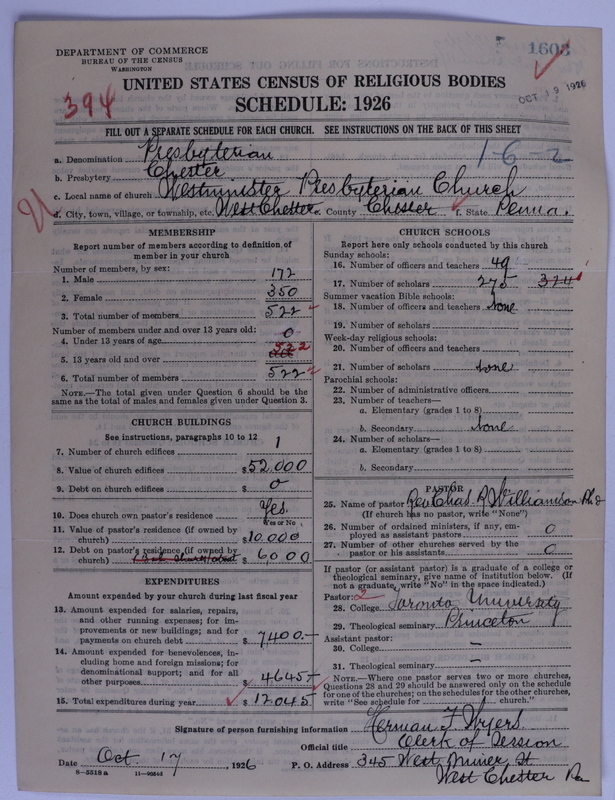 DEPARTMENT OF COMMERCE
BUREAU OF THE CENSUS
WASHINGTON
1608
OCT 19 1926
394
UNITED STATES CENSUS OF RELIGIOUS BODIES
SCHEDULE: 1926
FILL OUT A SEPARATE SCHEDULE FOR EACH CHURCH. SEE INSTRUCTIONS ON THE BACK OF THIS SHEET
1-6-2
a. Denomination Presbyterian
b. Presbytery Chester
c. Local name of church Westminister Presbyterian Church
d. City, town, village, or township, etc. West Chester e. County Chester f. State Penna.
MEMBERSHIP
Report number of members according to definition of
member in your church
Number of members, by sex:
1. Male 172
2. Female 350
3. Total number of members 522
Number of members under and over 13 years old:
4. Under 13 years of age 0
5. 13 years old and over 522
6. Total number of members 522
NOTE.—The total given under Question 6 should be
same as the total of males and females given under Question 3.
CHURCH BUILDINGS
See instructions, paragraphs 10 to 12
7. Number of church edifices 1
8. Value of church edifices $52,000
9. Debt on church edifices $ 0
10. Does church own pastor's residence Yes.
Yes or No
11. Value of pastor's residence (if owned by
church) $10,000
12. Debt on pastor's residence (if owned by
church) $ 6000
EXPENDITURES
Amount expended by your church during last fiscal year
13. Amount expended for salaries, repairs,
and other running expenses; for im-
provements or new buildings; and for
payments on church debt $ 7400.—
14. Amount expended for benevolences, in-
cluding home and foreign missions; for
denominational support; and for all
other purposes $ 4645—
15. Total expenditures during year $ 12045—
CHURCH SCHOOLS
Report here only schools conducted by this church
Sunday schools:
16. Number of officers and teachers 49
17. Number of scholars 275 324
Summer vacation Bible schools:
18. Number of officers and teachers None
19. Number of scholars
Week-day religious schools:
20. Number of officers and teachers
21. Number of scholars None
Parochial schools:
22. Number of administrative officers
23. Number of teachers—
a. Elementary (grades 1 to 8)
b. Secondary None
24. Number of scholars—
a. Elementary (grades 1 to 8)
b. Secondary
PASTOR
25. Name of pastor Rev Chas. R Williamson Ph D
(If church has no pastor, write "None")
26. Number of ordained ministers, if any, em-
ployed as assistant pastors 0
27. Number of other churches served by the
pastor or his assistants 0
If pastor (or assistant pastor) is a graduate of a college or
theological seminary, give name of institution below. (If
not a graduate, write "No" in the space indicated.)
Pastor: 2
28. College Toronto University
29. Theological seminary Princeton
Assistant pastor:
30. College —
31. Theological seminary —
NOTE.—Where one pastor serves two or more churches,
Questions 28 and 29 should be answered only on the schedule
for one of the churches; on the schedules for the other churches,
write "See schedule for church."
Signature of person furnishing information Herman F Wyers
Official title Clerk of Session
Date Oct. 17, 1926 P. O. Address 345 West Miner, St
West Chester Pa
8—5518 a